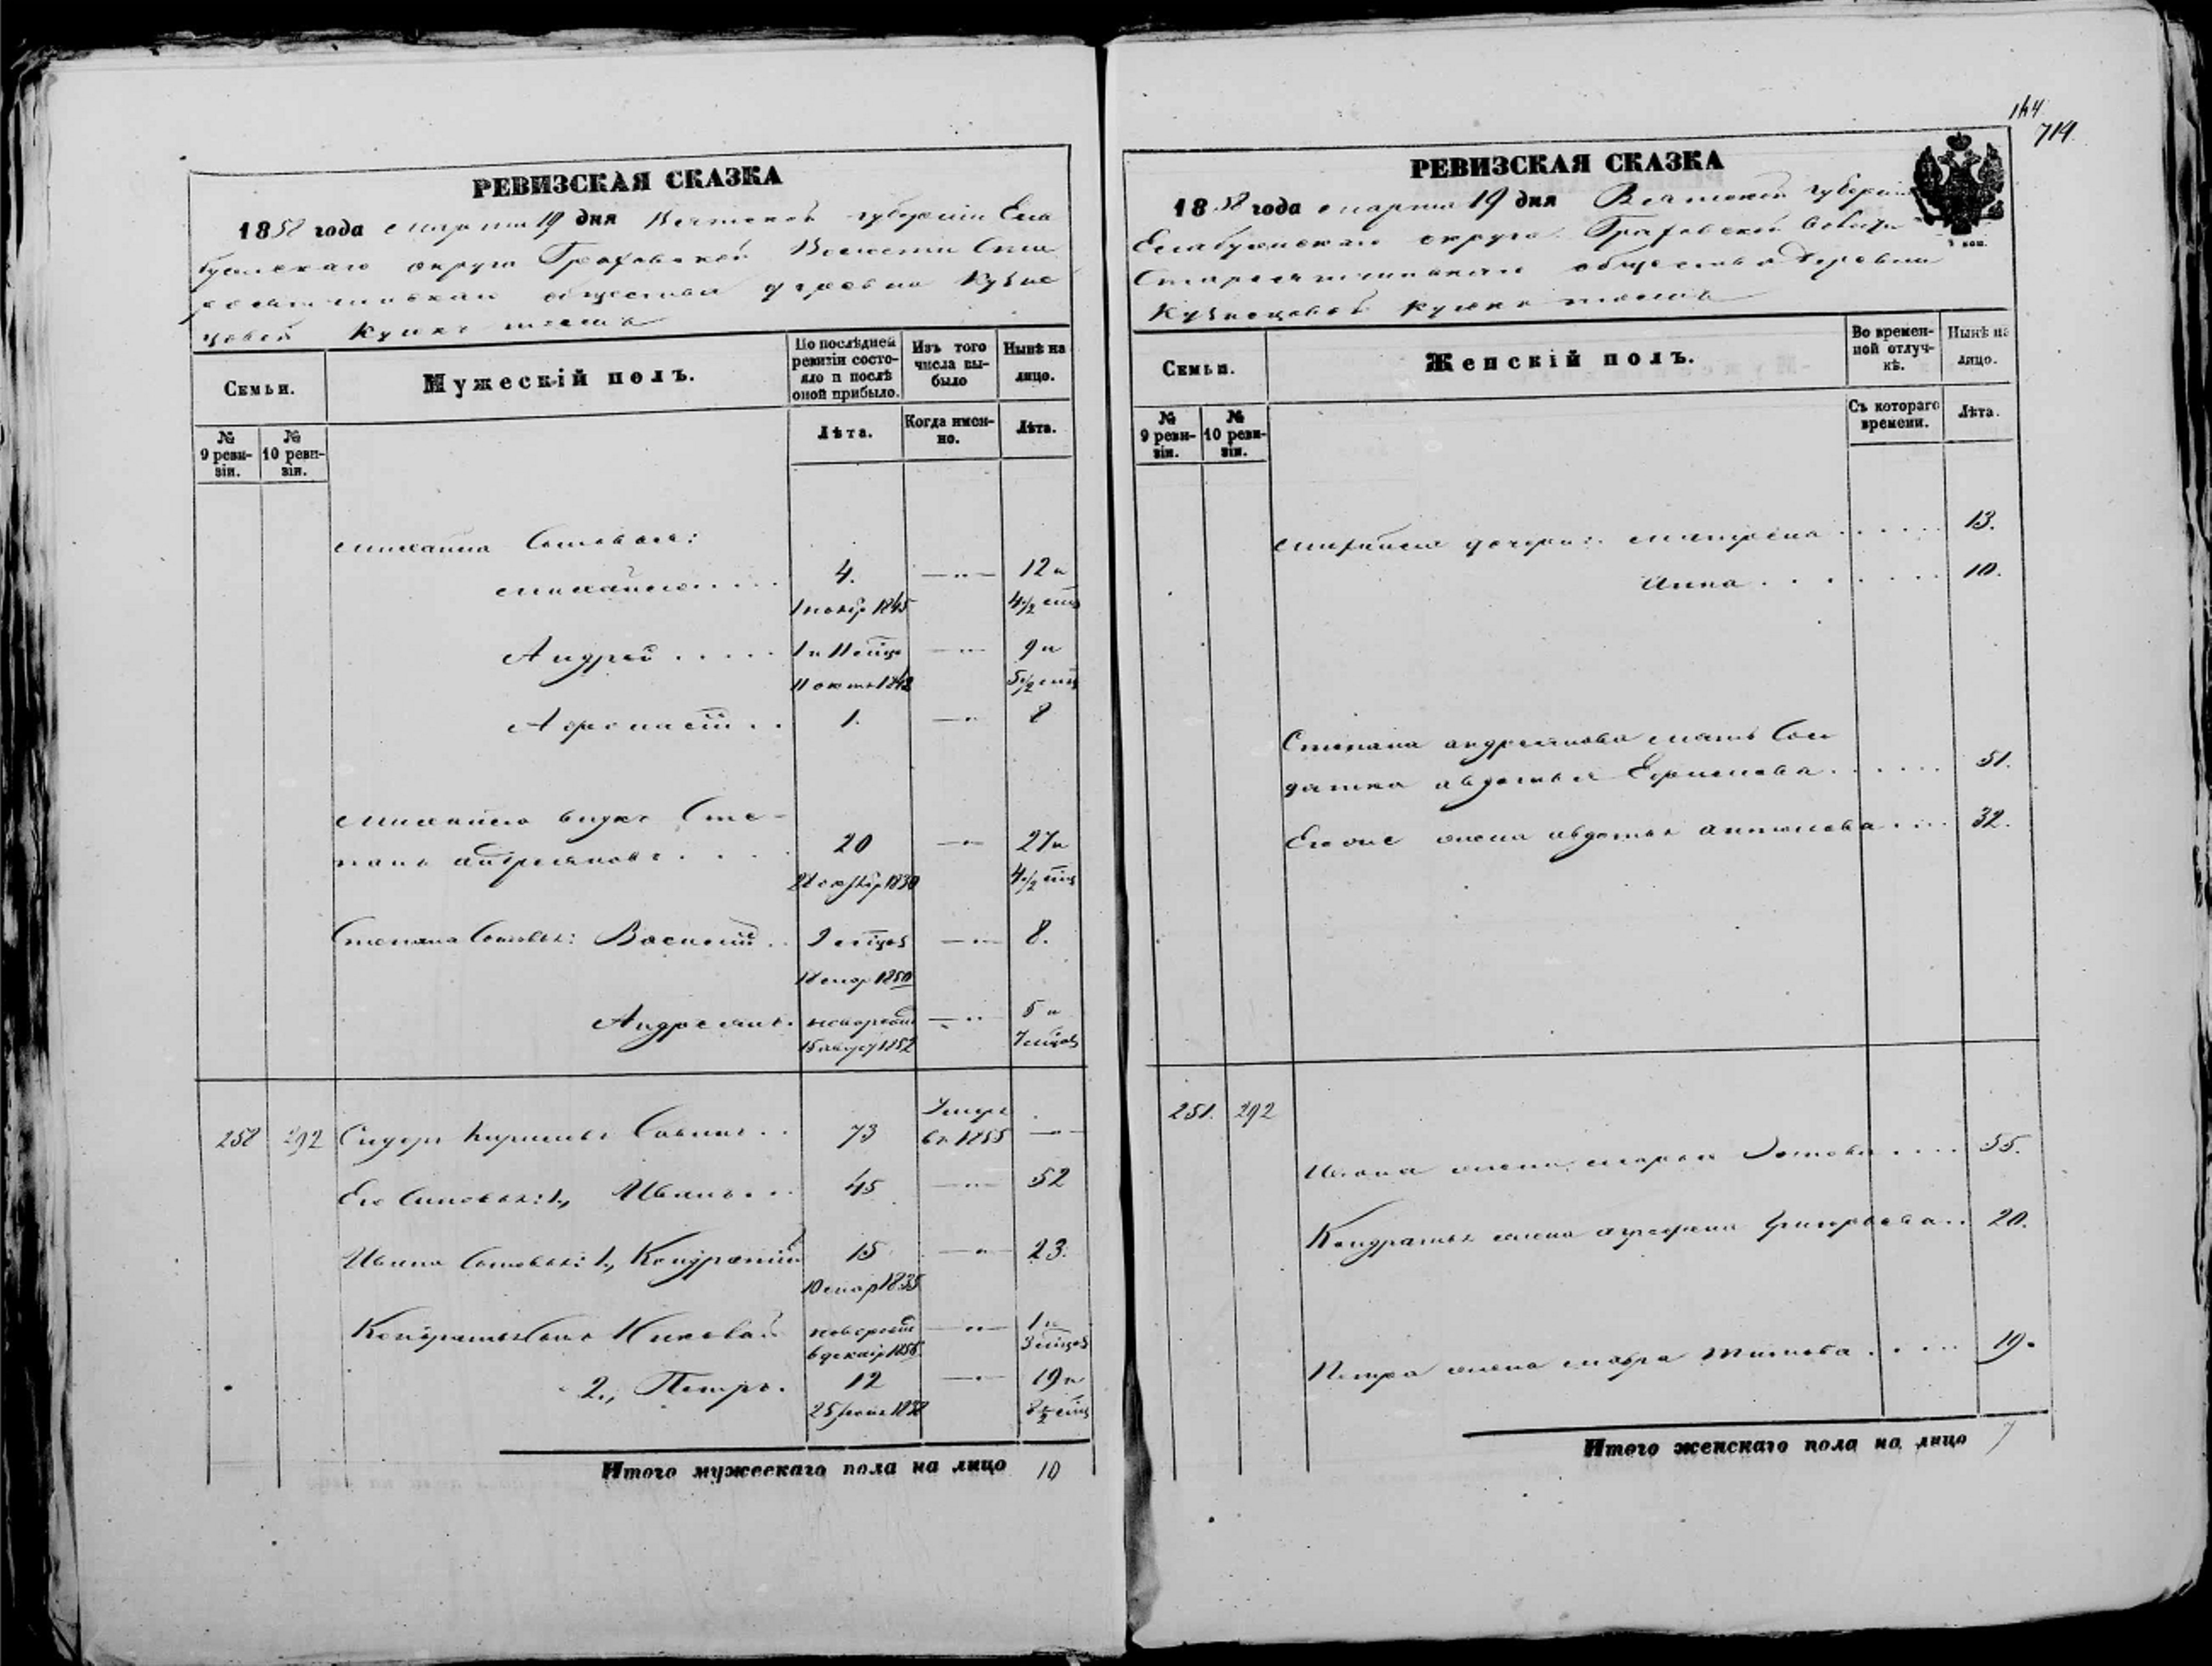 РЕВИЗСКАЯ СКАЗКА
1858 года марта 19 дня Вятской губернiи Ела
бужскаго округа Граховской Волости Ста
общества деревни Кузне
цовой
Семьи.
Мужескiй полъ.
По послѣдней ревизiи состо-
яло и послѣ
оной прибыло.
Изъ того
числа вы-
было
Нынѣ на
лицо.
№
9 реви-
зiи.
№
10 реви-
зiи.
Лѣта.
Когда имен-
но.
Лѣта.
Михайла Сыновья:
Михайло 4. 12 и
1 ноябр 1845 4 1/2 мца
Андрей 1 и 11 мцв 9 и
11 октяб 1848 5 1/2 мца
Афонасiй 1. 8
Михайла внукъ Сте-
панъ Андреяновъ 20 27 и
1830 4 1/2 мца
Степана Сыновья: Василий 8.
мар 1850
Андреянъ новорожд 5 и
15 август 1852 7 мцов
258 292 Сидоръ Савинъ 73 Умеръ
въ 1855
Его Сыновья: 1., Иванъ 45 52
Ивана Сыновья: 1., Кондратiй 15 23.
10 мар 1835
Кондратья Сынъ Николай новорожд 1 и
6 декаб 1856 3 мцов
2., Петръ. 12 19 и
25 1838 8 1/2 мца
Итого мужескаго пола на лицо 10
144
714.
РЕВИЗСКАЯ СКАЗКА
1858 года марта 19 дня Вятской губернiи
Елабужскаго округа Граховской Волости
общества Деревни
Кузнецовой
Семьи.
Женскiй полъ.
Во времен-
ной отлуч-
кѣ.
Нынѣ на
лицо.
№
9 реви-
зiи.
№
10 реви-
зiи.
Съ котораго
времени.
Лѣта.
Михайла дочери: Матрена 13.
Анна 10.
Степана Андреянова мать Сол
датка Авдотья Ефимова 51.
Его же жена Авдотья Антонова 32.
251. 292
Ивана жена Марья 55.
Кондратья жена Агрофена Григорьева 20.
Петра жена Мавра Титова 19.
Итого женскаго пола на лицо 7